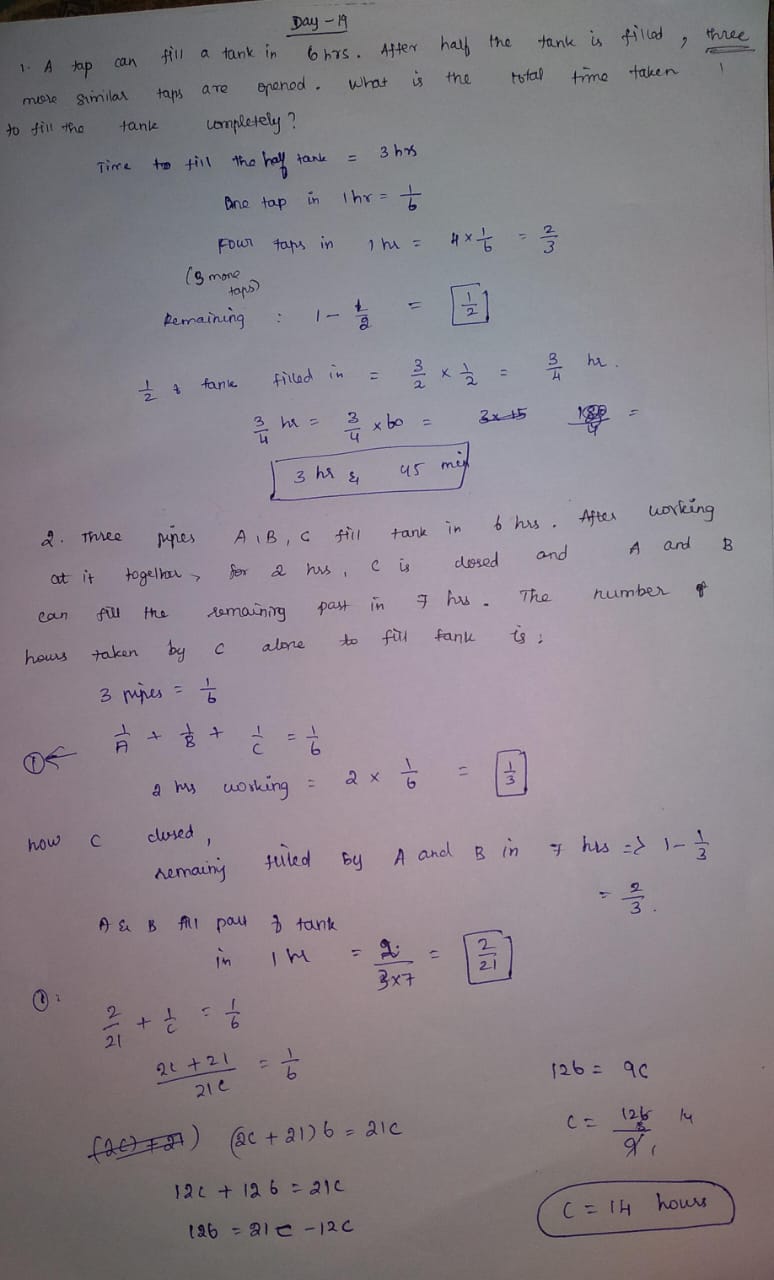 Day - 19
1. A tap can fill a tank in 6 hrs. After half the tank is filled, three
more similar taps are opened. What is the total time taken
to fill the tank completely?
Time to fill the half tank = 3 hrs
One tap in 1hr = 1/6
Four taps in 1 hr = 4 x 1/6 = 2/3
(3 more taps)
Remaining : 1 - 1/2 = 1/2
1/2 of tank filled in = 3/2 x 1/2 = 3/4 hr.
3/4 hr = 3/4 x 60 = 3x15 180/4 =
3 hr & 45 min
2. Three pipes A, B, C fill tank in 6 hrs. After working
at it together, for 2 hrs, C is closed and A and B
can fill the remaining part in 7 hrs. The number of
hours taken by C alone to fill tank is:
3 pipes = 1/6
① ← 1/A + 1/B + 1/C = 1/6
2 hrs working = 2 x 1/6 = 1/3
now C closed,
remaing filled by A and B in 7 hrs => 1 - 1/3
= 2/3.
A & B fill part of tank
in 1 hr = 2/3x7 = 2/21
①:
2/21 + 1/C = 1/6
2c + 21/21c = 1/6
(2c + 21) 6 = 21c
12c + 126 = 21c
126 = 21c - 12c
126 = 9c
C = 126/9 14
C = 14 hours